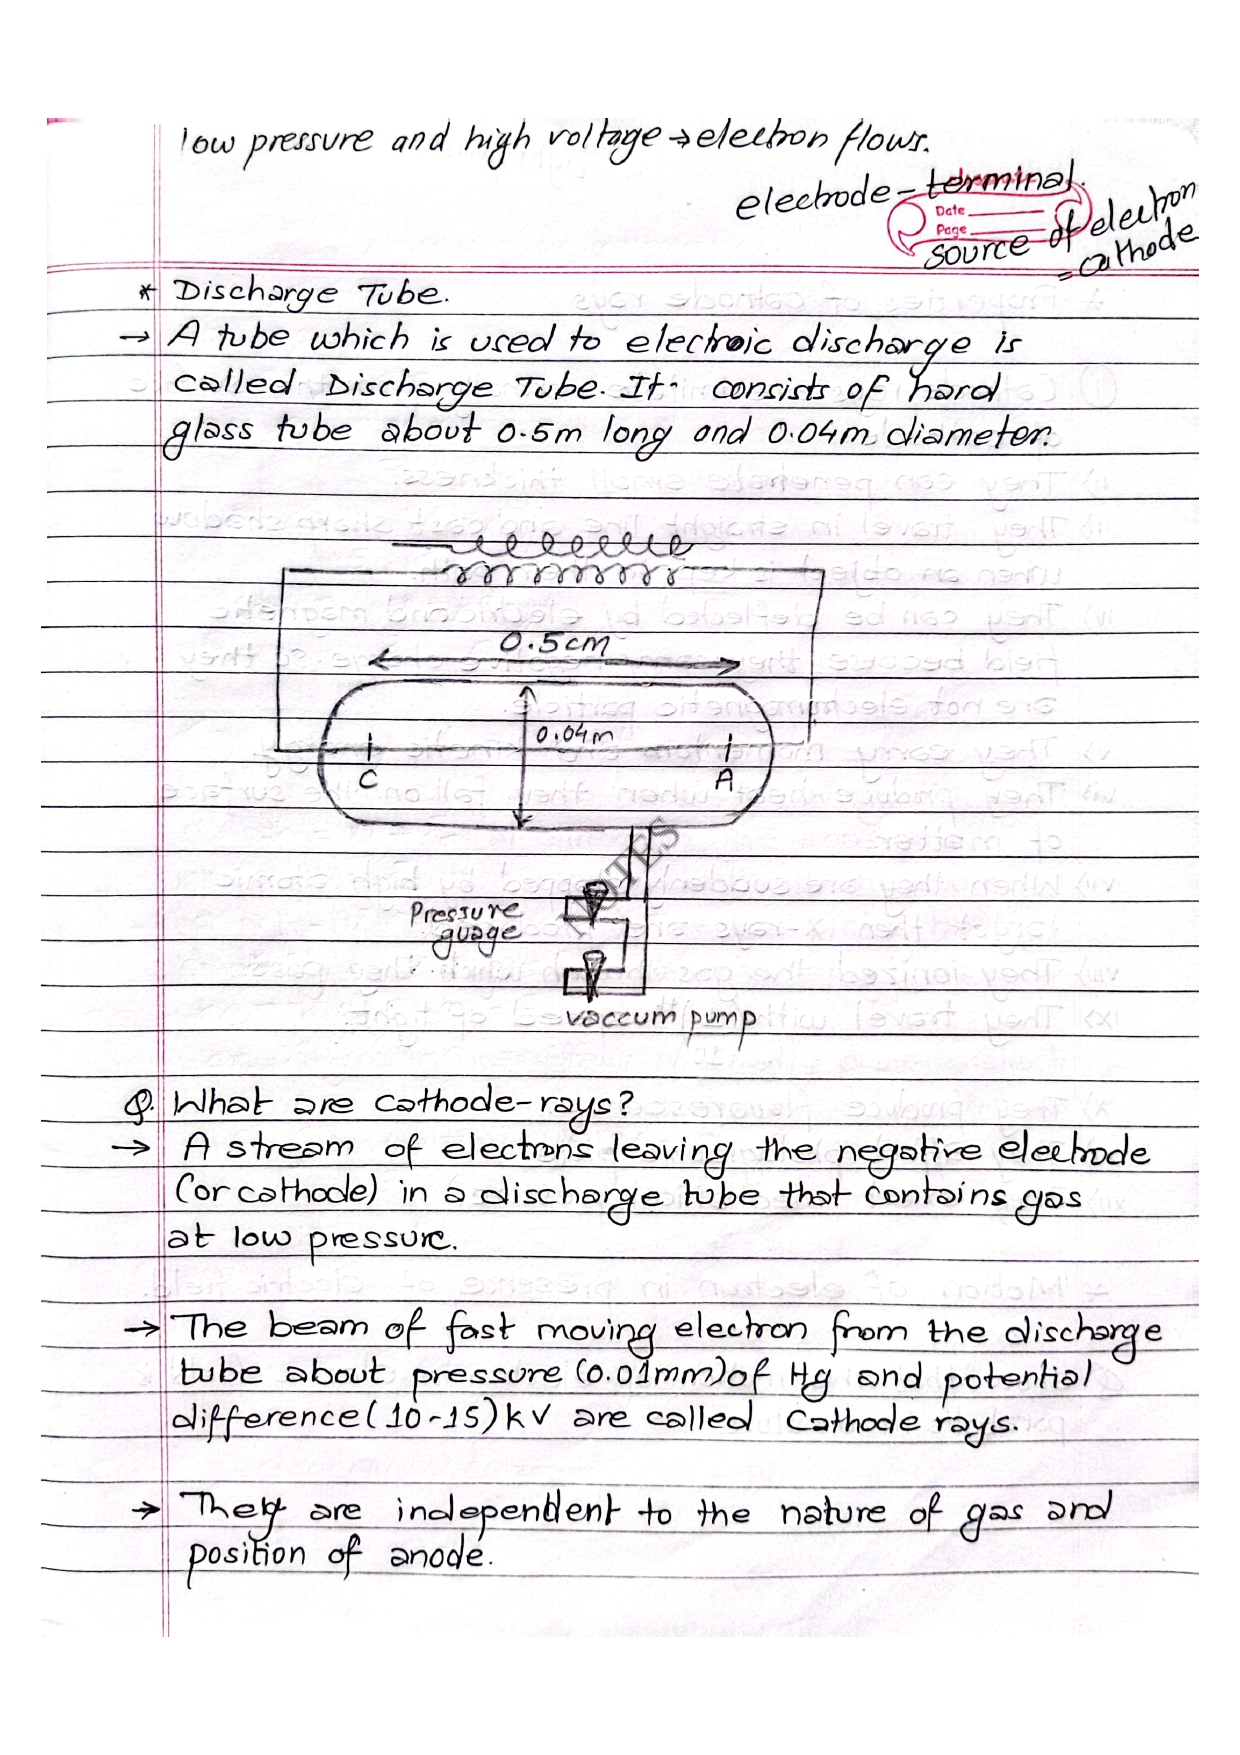 low pressure and high voltage → electron flows.
electrode - terminal.
Date
Page
source of electron
= cathode
* Discharge Tube.
→ A tube which is used to electroic discharge is
called Discharge Tube. It consists of hard
glass tube about 0.5m long and 0.04m diameter.
0.5cm
0.04m
C
A
NOTES
Pressure
guage
vaccum pump
Q. What are cathode-rays?
→ A stream of electrons leaving the negative electrode
(or cathode) in a discharge tube that contains gas
at low pressure.
→ The beam of fast moving electron from the discharge
tube about pressure (0.01mm) of Hg and potential
difference (10-15) kV are called Cathode rays.
→ They are independent to the nature of gas and
position of anode.